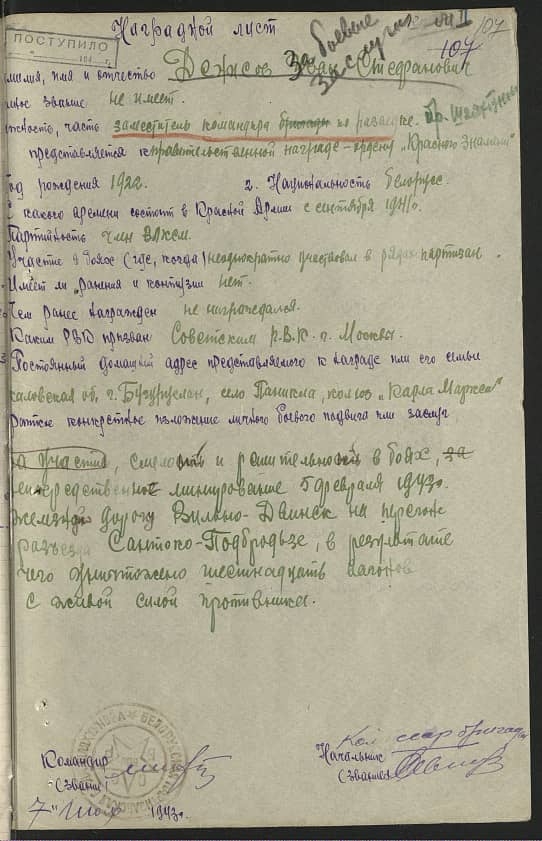 Наградной лист
за боевые заслуги
107
107
ПОСТУПИЛО
милия, имя и отчество Денисов Иван Стефанович
ное звание не имеет.
жность, часть заместитель командира бригады по разведке.
представляется к правительственной награде – ордену „Красного Знамени"
Год рождения 1922. 2. Национальность белорус.
С какого времени состоит в Красной Армии с сентября 1941г.
Партийность член ВЛКСМ.
Участие в боях (где, когда) неоднократно участвовал в рядах партизан.
Имеет ли ранения и контузии нет.
Чем ранее награжден не награждался.
Каким РВК призван Советским Р.В.К. г. Москвы.
Постоянный домашний адрес представляемого к награде или его семьи
каловская об, г. Бугуруслан, село Паникла, колхоз „Карла Маркса"
раткое конкретное изложение личного боевого подвига или заслуг
за участие, смелость и решительность в боях, за
непосредственное минирование 5 февраля 1943г.
железной дороги Вильно-Двинск на перегоне
разъезда Сантоко-Подбродьзе, в результате
чего уничтожено шестнадцать вагонов
с живой силой противника.
Командир
(Звание)
Начальник
(Звание)
7" 1943г.